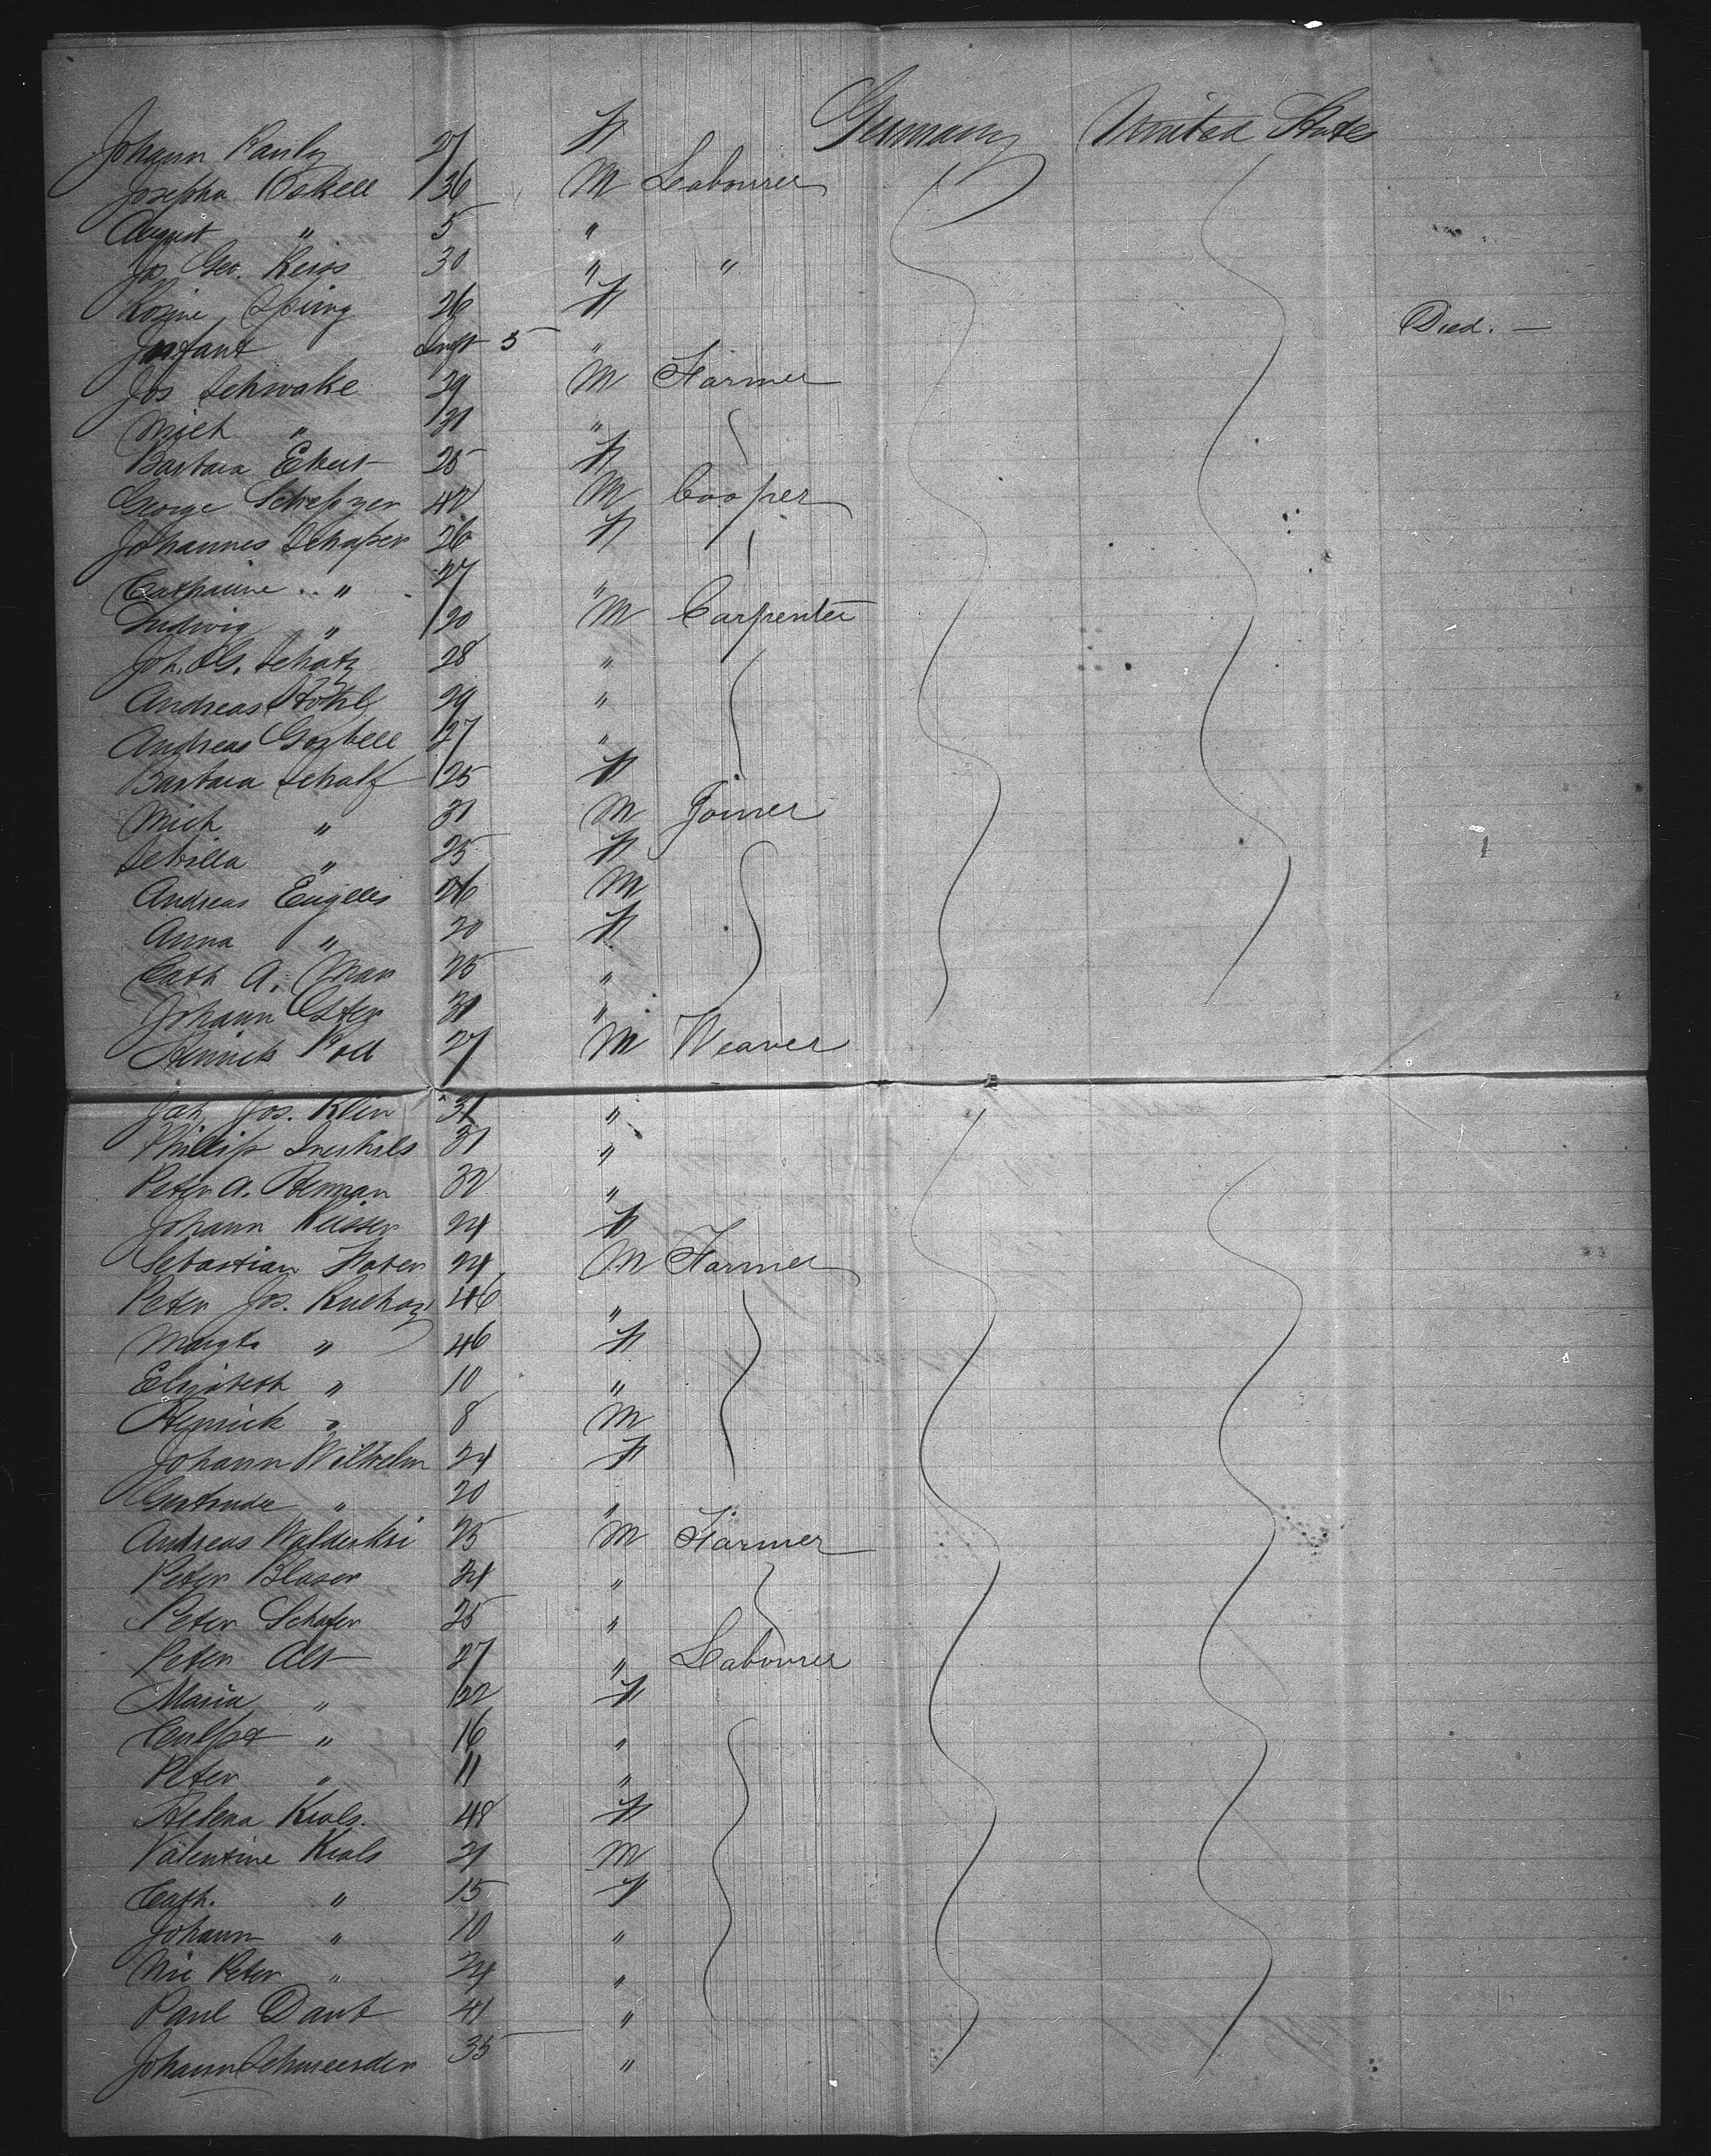 Johann Pauly 27 F Germany United States
Josepha Bakell 36 M Labourer
August " 5 "
Jos Geo. Keiss 30 " "
Rosine Spring 26 F
Infant Inft 5 " Died. —
Jos Schwake 29 M Farmer
Mich " 21 "
Barbara Ekert 25 F
George 42 M Cooper
Johannes Schafer 26 F
Catharine " 27 "
Ludwig " 20 M Carpenter
Joh. G. Schatz 28 "
Andreas 29 "
Andreas Gosbell 27 "
Barbara Schalf 25 F
Mich " 31 M Joiner
Sebilla " 25 F
Andreas Engells 26 M
Anna " 20 F
Cath A. Man 25 "
Johann Oster 31 "
Henrick Poll 27 M Weaver
Joh. Jos. Klein 31 "
Phillip 31 "
Peter A. Herman 32 "
Johann Reisser 24 F
Sebastian Faber 24 M Farmer
Peter Jos. 46 "
Margt. " 46 F
Elizabeth " 10 "
Henrick " 8 M
Johann Wilhelm 24 F
Gertrude " 20 "
Andreas 25 M Farmer
Peter Blaser 34 "
Peter Schafer 25 "
Peter Alt 27 " Labourer
Maria " 22 F
" 16 "
Peter " 11 "
Helena Krols. 48 F
Valentine Krols 21 M
Cath. " 15 F
Johann " 10 "
Nic Peter " 24 "
Paul Daub 41 "
Johann 35 "